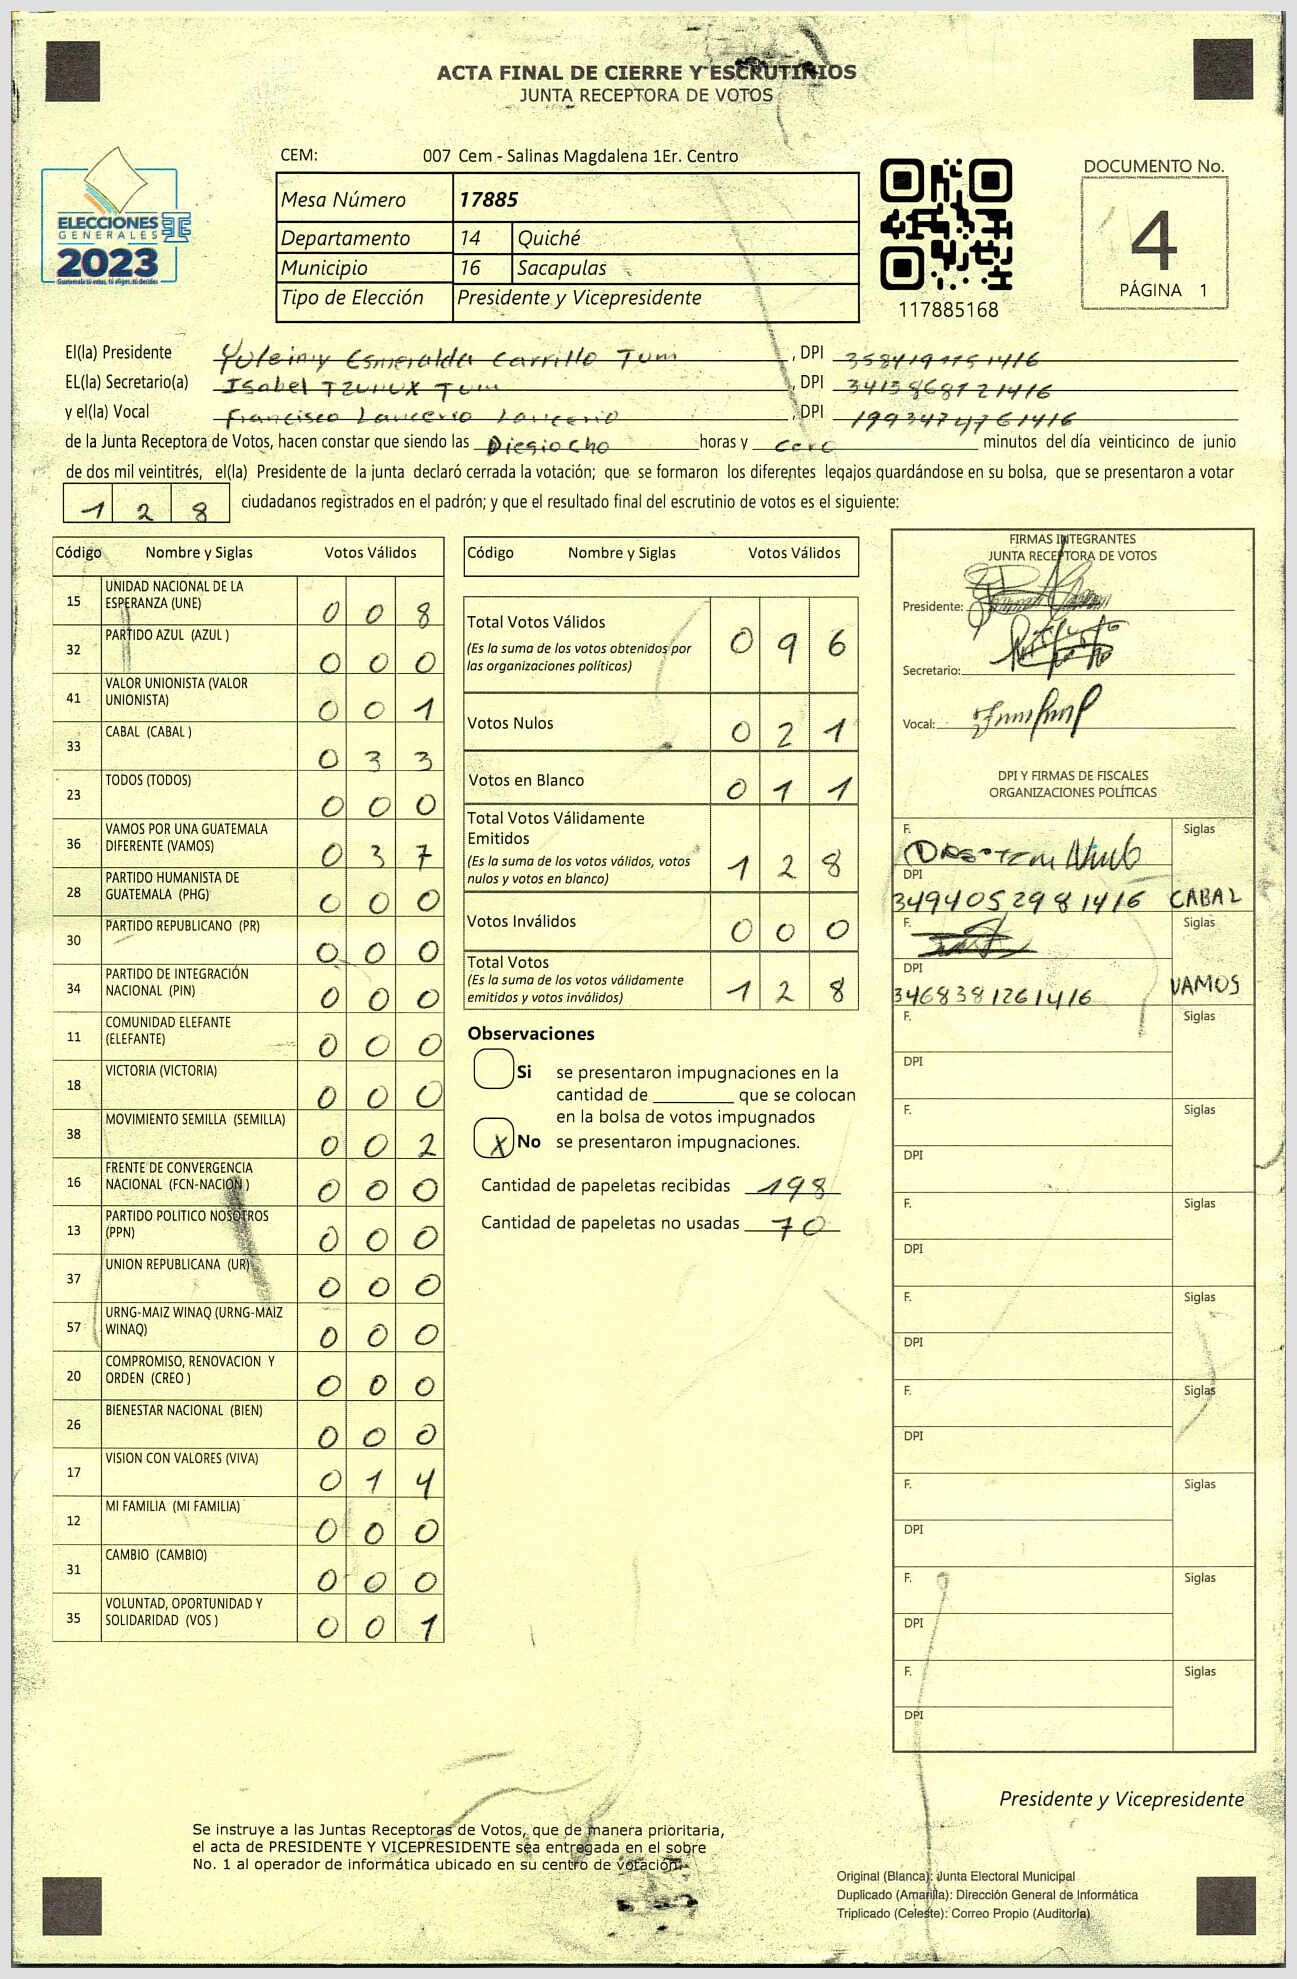 ACTA FINAL DE CIERRE Y ESCRUTINIOS
JUNTA RECEPTORA DE VOTOS
CEM: 007 Cem - Salinas Magdalena 1Er. Centro
ELECCIONES
GENERALES
2023
Mesa Número 17885
Departamento 14 Quiché
Municipio 16 Sacapulas
Tipo de Elección Presidente y Vicepresidente
117885168
DOCUMENTO No.
4
PÁGINA 1
El(la) Presidente Yuleimy Esmeralda Carrillo Tum , DPI
EL(la) Secretario(a) Isabel Tzunux Tum , DPI
y el(la) Vocal Francisco Lancerio Lancerio , DPI
de la Junta Receptora de Votos, hacen constar que siendo las Diesiocho horas y cero minutos del día veinticinco de junio
de dos mil veintitrés, el(la) Presidente de la junta declaró cerrada la votación; que se formaron los diferentes legajos quardándose en su bolsa, que se presentaron a votar
1 2 8 ciudadanos registrados en el padrón; y que el resultado final del escrutinio de votos es el siguiente:
Código Nombre y Siglas Votos Válidos
15 UNIDAD NACIONAL DE LA ESPERANZA (UNE) 0 0 8
32 PARTIDO AZUL (AZUL ) 0 0 0
41 VALOR UNIONISTA (VALOR UNIONISTA) 0 0 1
33 CABAL (CABAL ) 0 3 3
23 TODOS (TODOS) 0 0 0
36 VAMOS POR UNA GUATEMALA DIFERENTE (VAMOS) 0 3 7
28 PARTIDO HUMANISTA DE GUATEMALA (PHG) 0 0 0
30 PARTIDO REPUBLICANO (PR) 0 0 0
34 PARTIDO DE INTEGRACIÓN NACIONAL (PIN) 0 0 0
11 COMUNIDAD ELEFANTE (ELEFANTE) 0 0 0
18 VICTORIA (VICTORIA) 0 0 0
38 MOVIMIENTO SEMILLA (SEMILLA) 0 0 2
16 FRENTE DE CONVERGENCIA NACIONAL (FCN-NACION ) 0 0 0
13 PARTIDO POLITICO NOSOTROS (PPN) 0 0 0
37 UNION REPUBLICANA (UR) 0 0 0
57 URNG-MAIZ WINAQ (URNG-MAIZ WINAQ) 0 0 0
20 COMPROMISO, RENOVACION Y ORDEN (CREO ) 0 0 0
26 BIENESTAR NACIONAL (BIEN) 0 0 0
17 VISION CON VALORES (VIVA) 0 1 4
12 MI FAMILIA (MI FAMILIA) 0 0 0
31 CAMBIO (CAMBIO) 0 0 0
35 VOLUNTAD, OPORTUNIDAD Y SOLIDARIDAD (VOS ) 0 0 1
Código Nombre y Siglas Votos Válidos
Total Votos Válidos 0 9 6
(Es la suma de los votos obtenidos por
las organizaciones políticas)
Votos Nulos 0 2 1
Votos en Blanco 0 1 1
Total Votos Válidamente
Emitidos 1 2 8
(Es la suma de los votos válidos, votos
nulos y votos en blanco)
Votos Inválidos 0 0 0
Total Votos
(Es la suma de los votos válidamente
emitidos y votos inválidos) 1 2 8
Observaciones
Si se presentaron impugnaciones en la
cantidad de ________ que se colocan
en la bolsa de votos impugnados
X No se presentaron impugnaciones.
Cantidad de papeletas recibidas 198
Cantidad de papeletas no usadas 70
FIRMAS INTEGRANTES
JUNTA RECEPTORA DE VOTOS
Presidente:
Secretario:
Vocal:
DPI Y FIRMAS DE FISCALES
ORGANIZACIONES POLÍTICAS
F. Siglas
DPI
3494052981416 CABAL
F. Siglas
DPI
3468381261416 VAMOS
F. Siglas
DPI
F. Siglas
DPI
F. Siglas
DPI
F. Siglas
DPI
F. Siglas
DPI
F. Siglas
DPI
F. Siglas
DPI
F. Siglas
DPI
Presidente y Vicepresidente
Se instruye a las Juntas Receptoras de Votos, que de manera prioritaria,
el acta de PRESIDENTE Y VICEPRESIDENTE sea entregada en el sobre
No. 1 al operador de informática ubicado en su centro de votación.
Original (Blanca): Junta Electoral Municipal
Duplicado (Amarilla): Dirección General de Informática
Triplicado (Celeste): Correo Propio (Auditoría)